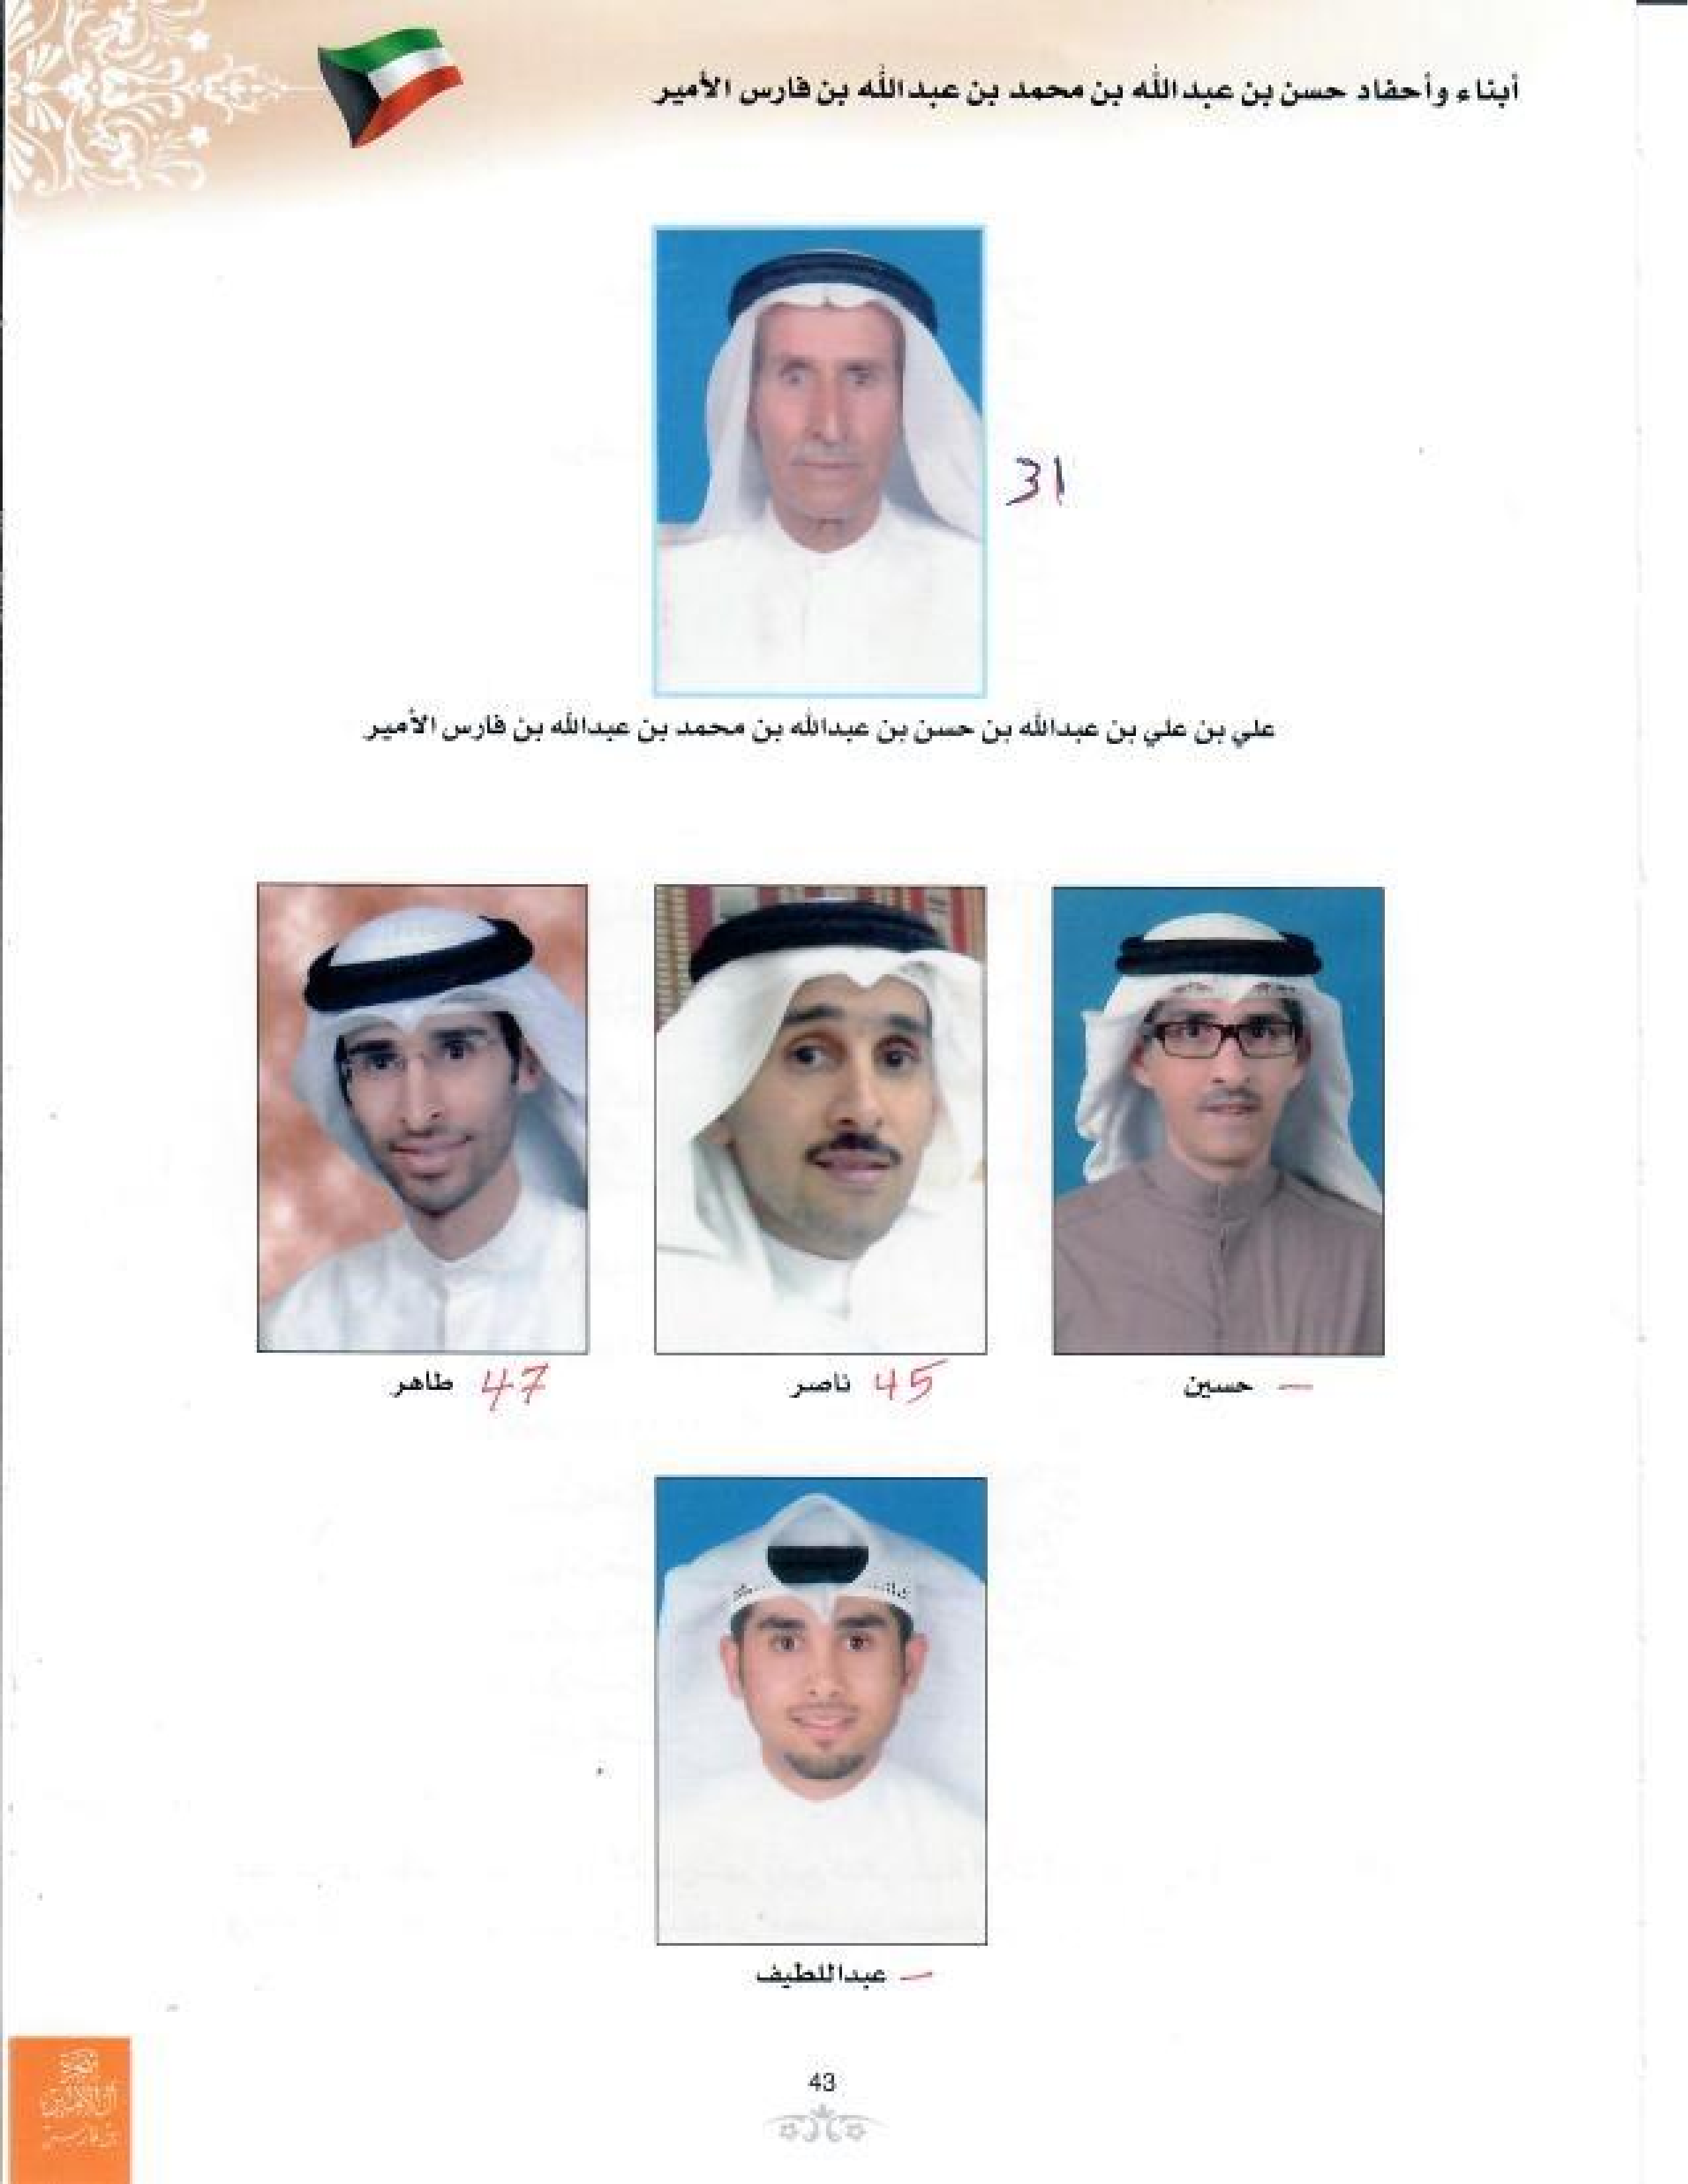 أبناء وأحفاد حسن بن عبدالله بن محمد بن عبدالله بن فارس الأمير
31
علي بن علي بن عبدالله بن حسن بن عبدالله بن محمد بن عبدالله بن فارس الأمير
حسين –
ناصر 45
طاهر 47
عبداللطيف –
43